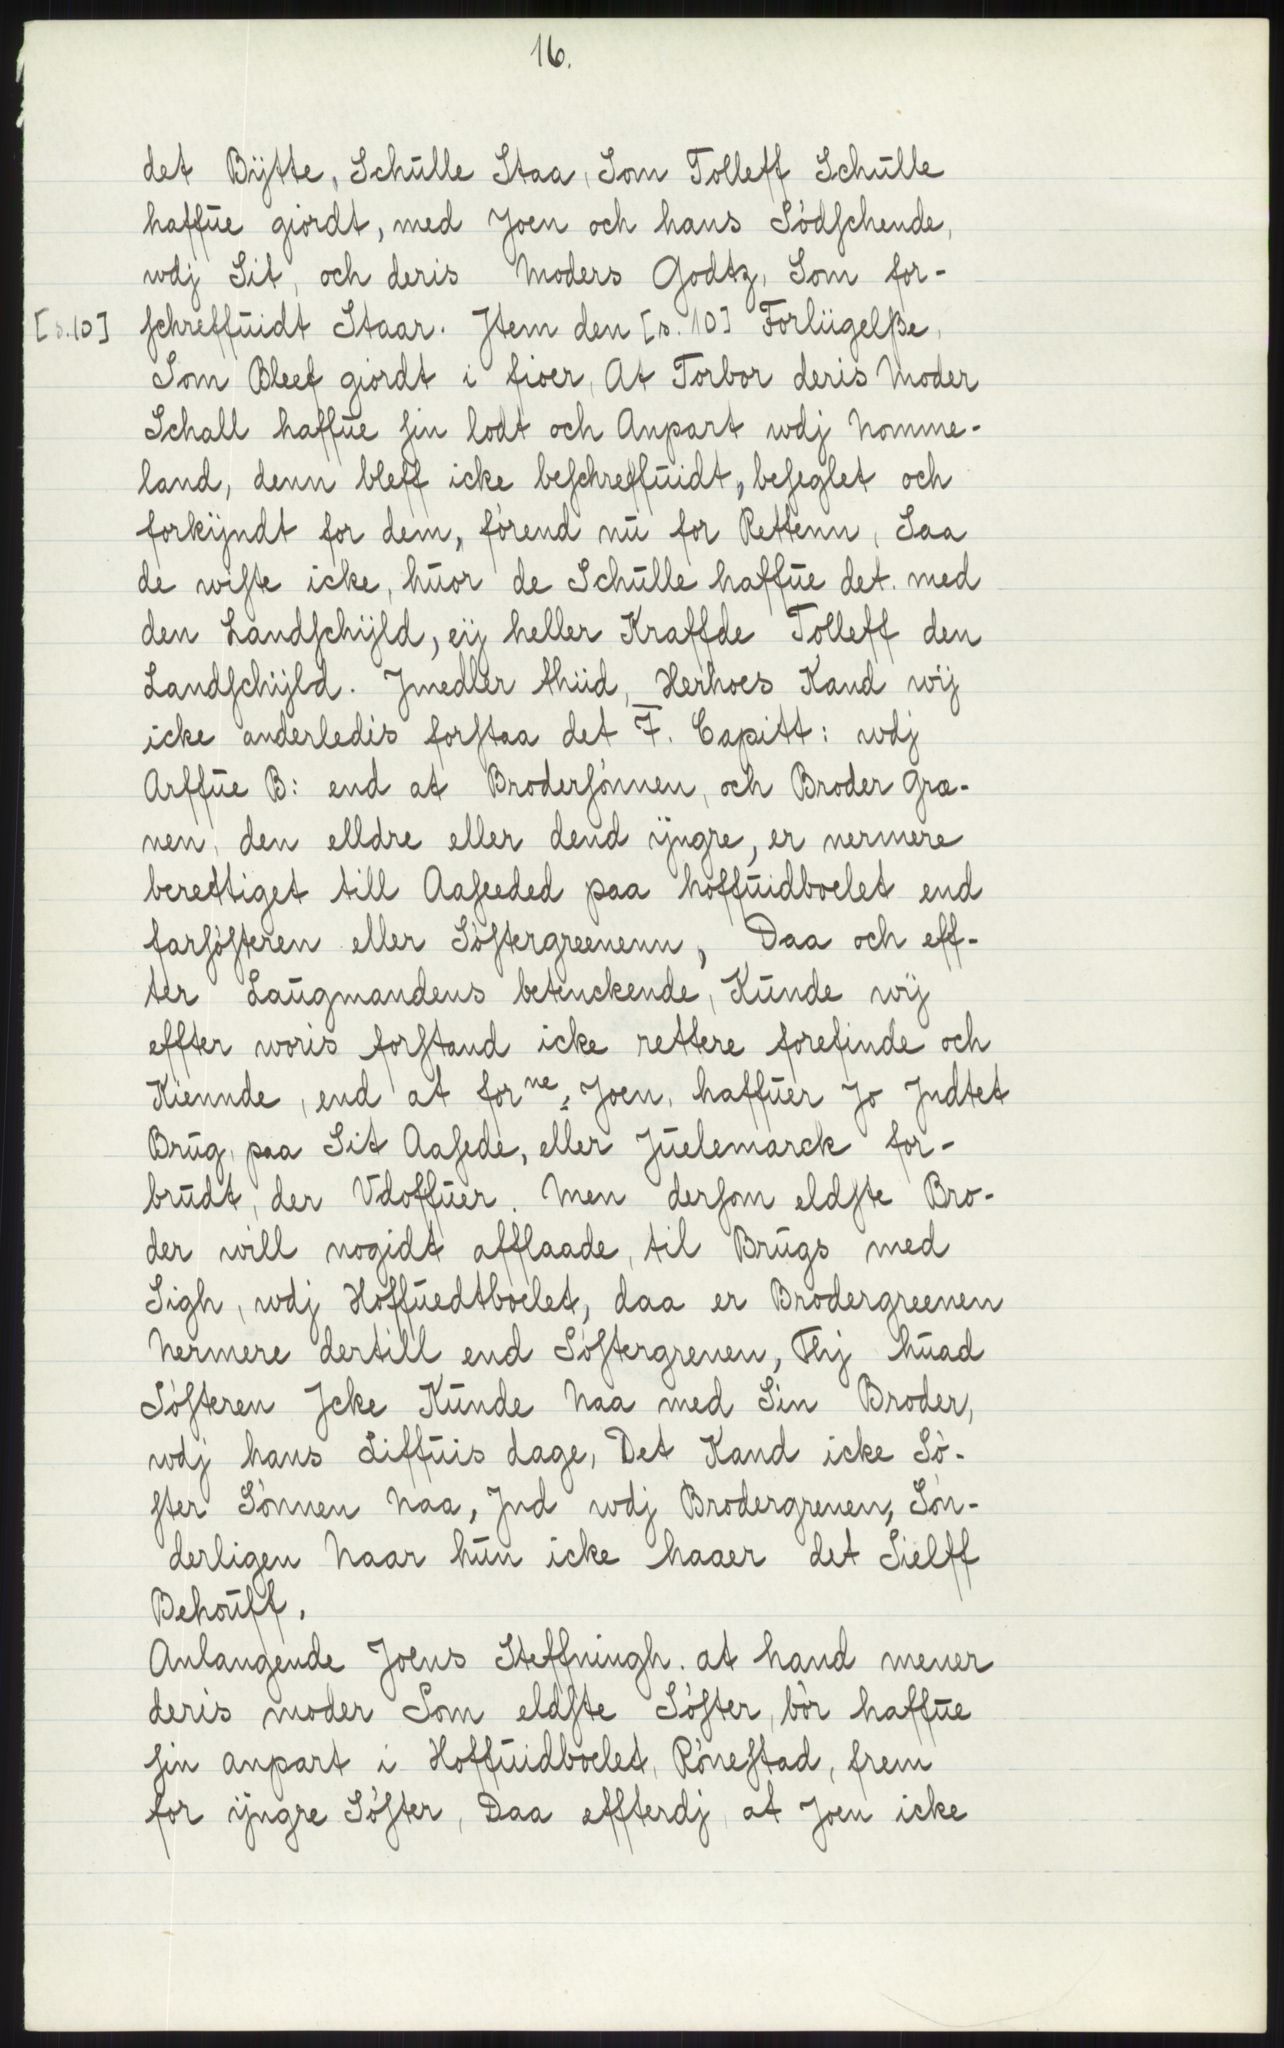 16.
det Bÿtte, Schulle Staa, Som Tolleff Schulle
haffue giordt, med Joen och hans Sødschende,
wdj Sit, och deris Moders Godtz, Som for-
[s.10] schreffuidt Staar. Jtem den [s. 10] Forlügelße,
Som Bleef giordt i fioer, At Torbor deris Moder
Schall haffue sin lodt och Anpart wdj Nomme-
land, denn bleff icke beschreffuidt, beseglet och
forkÿndt for dem, førend nu for Rettenn, Saa
de wiste icke, huor de Schulle haffue det. med
den Landschÿld, eÿ heller Kraffde Tolleff den
Landschÿld. Jmedler thiid, Herhoes Kand wÿ
icke anderledis forstaa det 7. Capitt: wdj
Arffue B: end at Brodersønnen, och Broder Gre-
nen, den elldre eller dend ÿngre, er nermere
berettiget till Aaseeded paa hoffuidboelet end
farsøsteren eller Søstergreenenn, Daa och eff-
ter Laugmandens betenckende, Kunde wÿ
effter woris forstand icke rettere forefinde och
Kiennde, end at forne: Joen, haffuer Jo Jndtet
Brug, paa Sit Aasede, eller Juelemarck for-
brudt, der Vdoffuer. Men dersom eldste Bro-
der will nogidt afflaade, til Brugs med
Sigh, wdj Hoffuedtboelet, daa er Brodergreenen
Nermere dertill end Søstergrenen, Thj huad
Søsteren Jcke Kunde Naa med Sin Broder,
wdj hans Liffuis dage, Det Kand icke Sø-
ster Sønnen Naa, Jnd wdj Brodergrenen, Søn-
derligen Naar hun icke haaer det Sielff
Behouff.
Anlangende Joens Steffningh. at hand mener
deris moder Som eldste Søster, bør haffue
sin anpart i Hoffuidboelet, Rønestad, frem
for ÿngre Søster, Daa effterdj, at Joen icke